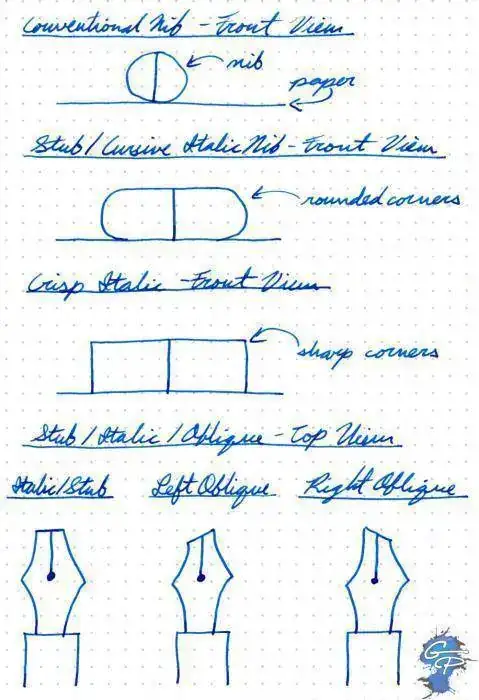 Conventional Nib - Front View
nib
paper
Stub / Cursive Italic Nib - Front View
rounded corners
Crisp Italic - Front View
sharp corners
Stub / Italic / Oblique - Top View
Italic/Stub Left Oblique Right Oblique
GP